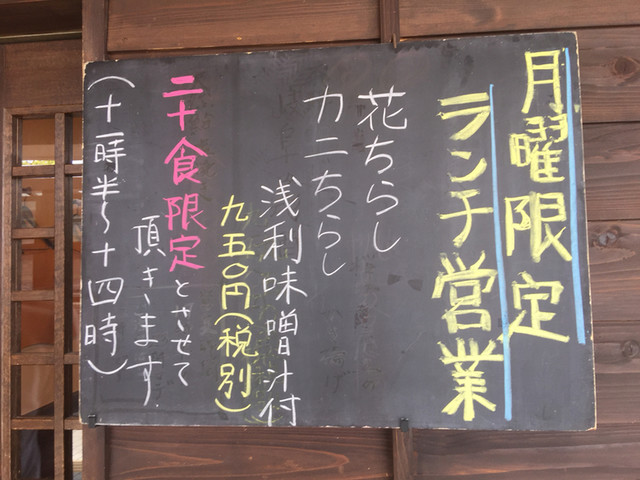 月曜限定
ランチ営業
花ちらし
カニちらし
浅利味噌汁付
九五〇円(税別)
二十食限定とさせて
頂きます
(十一時半〜十四時)